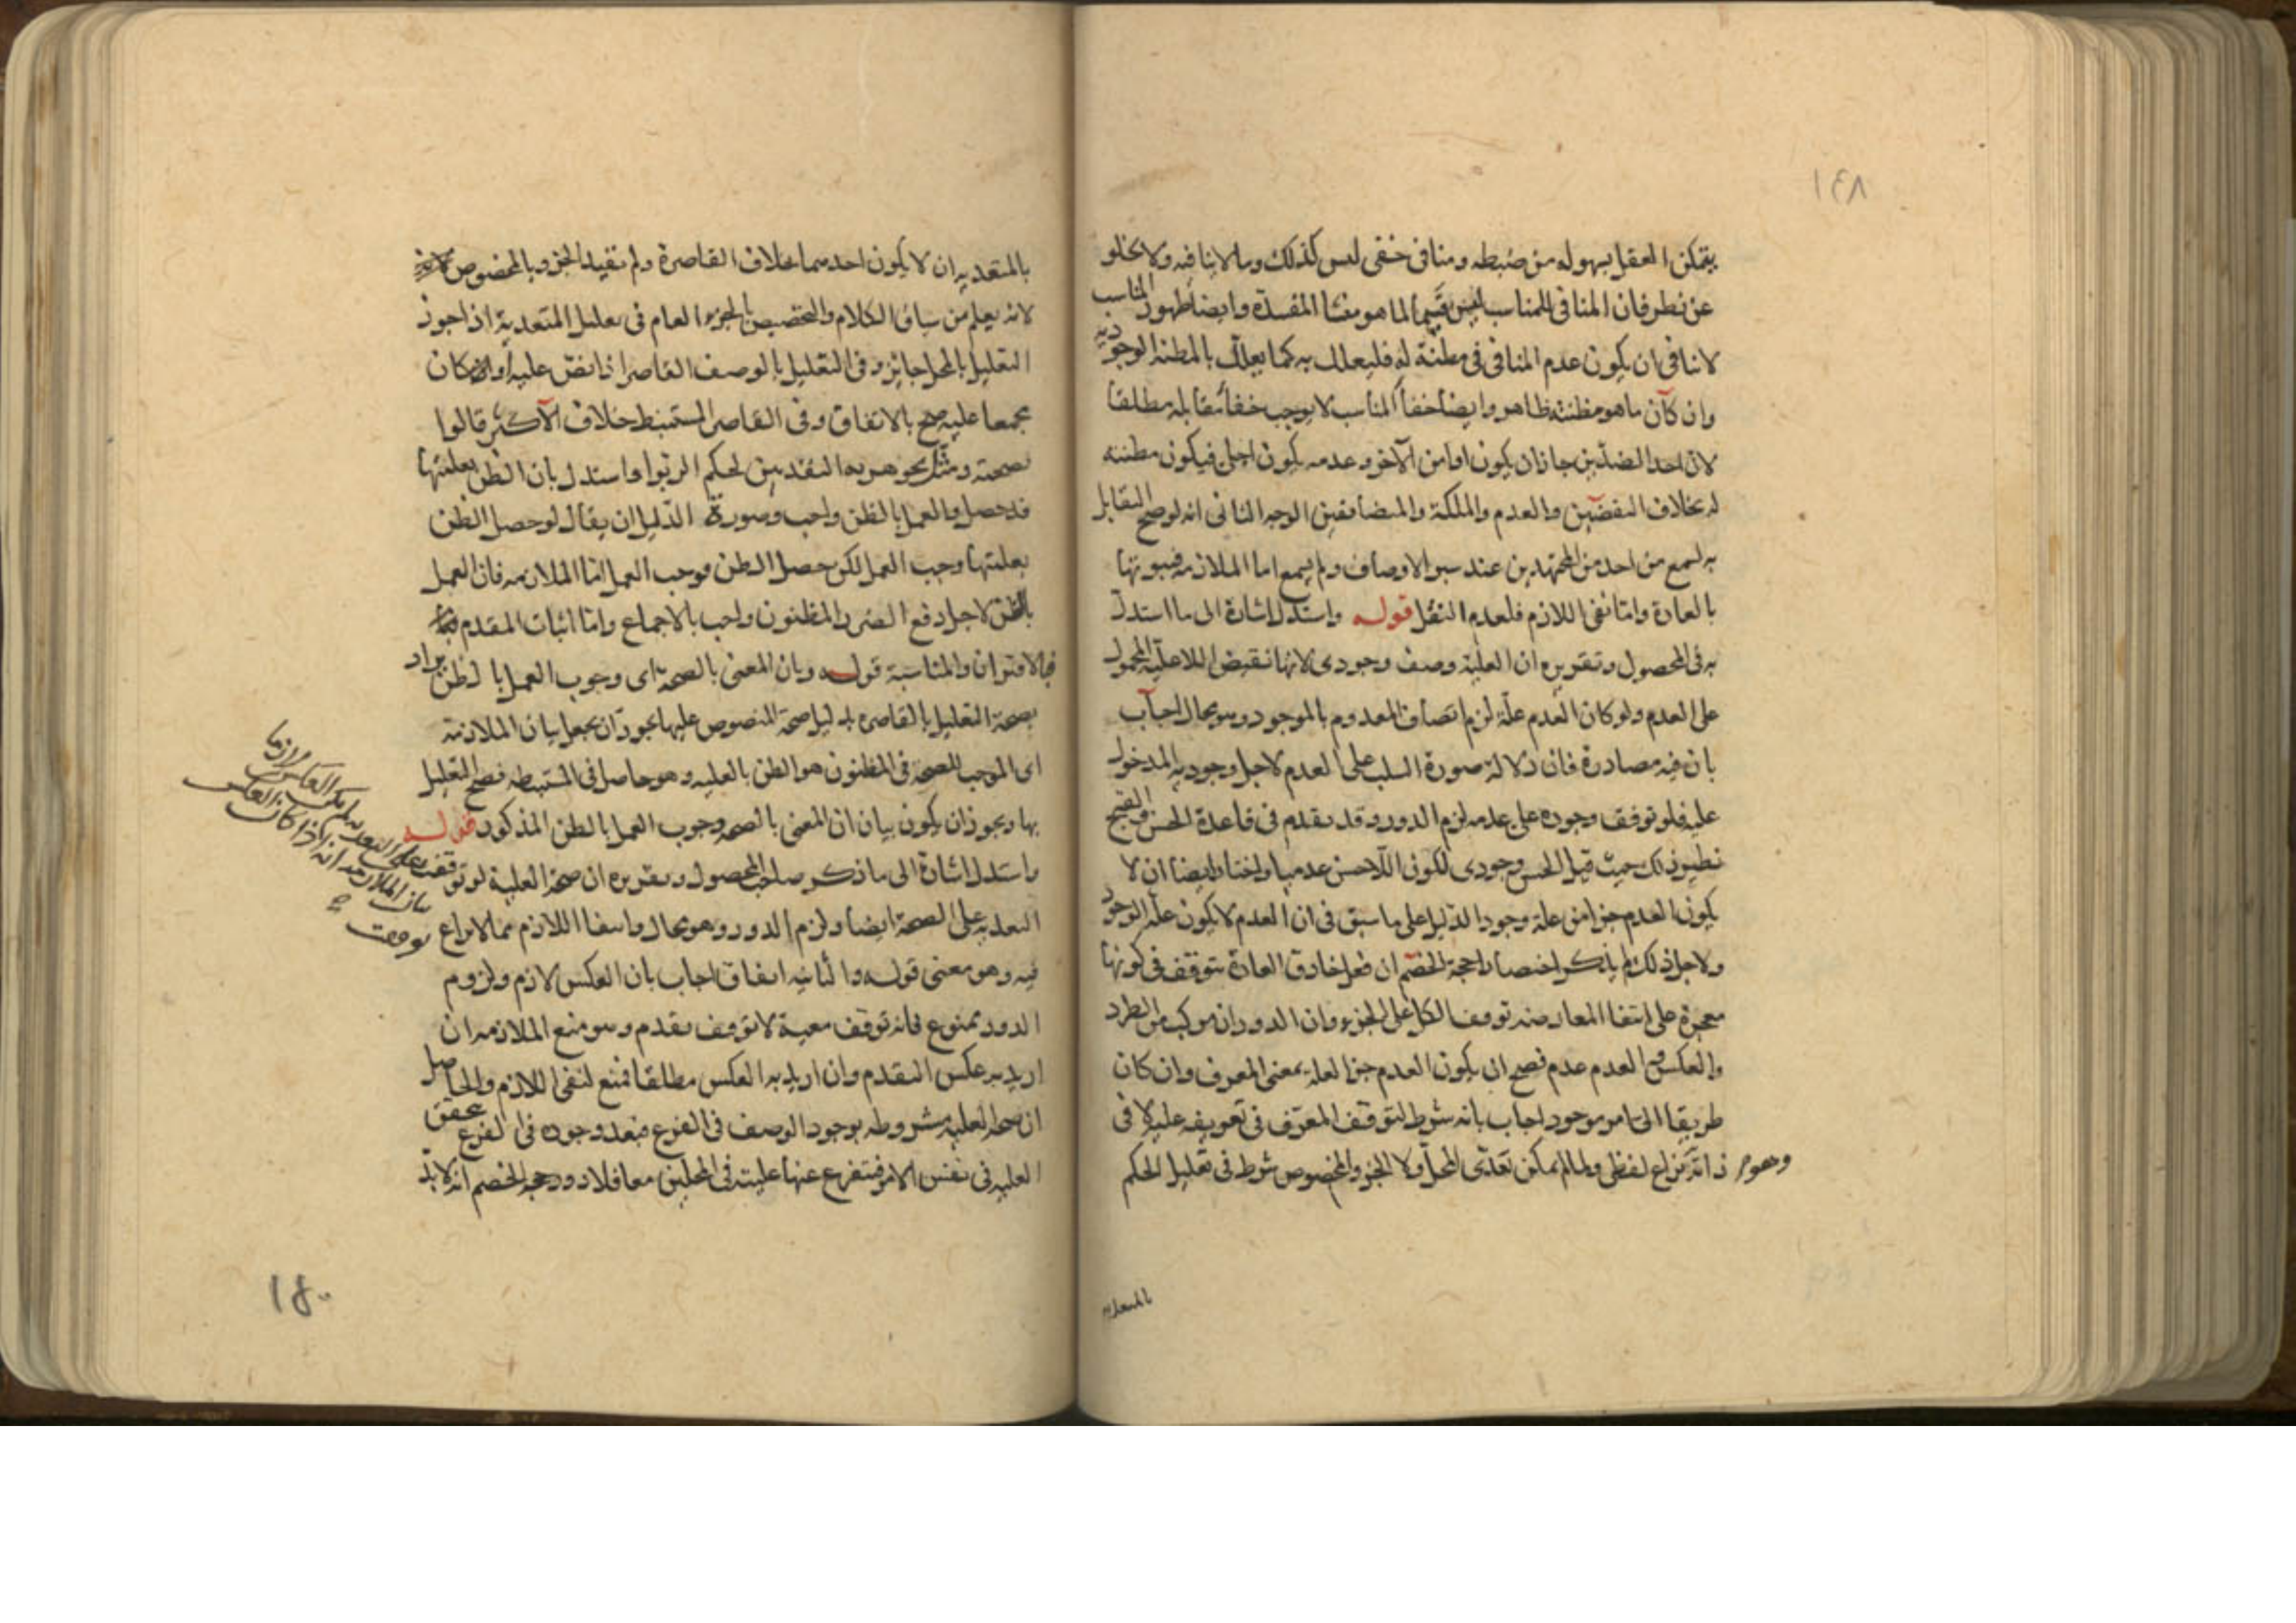 ١٤٨
يتمكن العقل بسهوله من ضبطه ومنافى خفى ليس كذلك وما لا ينافيه ولا يخلو
عن نظر فان المنافى للمناسب ليس قسيما لما هو منشا المفسدة وايضا ظهور المناسب
لا ينافى ان يكون عدم المنافى فى مظنة له فليعلل به كما يعلل بالمظنه الوجوديه
وان كان ما هو مظنته ظاهر وايضا خفا المناسب لا يوجب خفا مقابله مطلقا
لان احد الضدين جاز ان يكون اوامن الآخر وعدمه يكون اجلى فيكون مظنته
له بخلاف النقضين والعدم والملكة والمتضايفين الوجه الثانى انه لوصح التقابل
به لسمع من احد من المجتهدين عند سبر الاوصاف ولم يسمع اما الملازمه فبيوتها
بالعادة واما نفى اللازم فلعدم النقل قوله واستدل اشارة الى ما استدل
به فى المحصول وتقريره ان العلية وصف وجودى لانها نقيض اللاعلية المحمول
على العدم ولو كان العدم علة لزم اتصاف المعدوم بالموجود وهو محال اجاب
بان فيه مصادرة فان دلالة صورة السلب على العدم لاجل وجوديه المدخول
عليه فلو توقف وجوده على عدمه لزم الدور وقد تقدم فى قاعدة الحسن والقبح
نظير ذلك حيث قيل الحسن وجودى لكونى اللاحسن عدميا واختار ايضا ان لا
يكون العدم جزا من علة وجود الدليل على ما سبق فى ان العدم لا يكون علة الوجود
ولاجل ذلك لم يذكر اختصارا حجة الخصم ان فعل خارق العادة يتوقف فى كونها
معجزة على انتفا المعارضه توقف الكل على الجزء وان الدوران مركب من الطرد
والعكس والعدم عدم فصح ان يكون العدم جزا لعلة بمعنى المعرف وان كان
طريقا الى امر موجود اجاب بانه شرط لتوقف المعرف فى تعريفه عليه لا فى
ذاته نزاع لفظى ولما لم يمكن تعدى المحل ولا الجز والمخصوص شرط فى تعليل الحكم
وهو
بالمتعديه
بالمتعديه ان لا يكون احدهما بخلاف القاصرة ولم نقيد الجزو بالمخصوص
لانه يعلم من سياق الكلام والتخصيص بالجزء العام فى تعليل المتعدية اذا جوز
التعليل بالمحل جائز وفى التعليل بالوصف القاصر اذا نص عليه او كان
مجمعا عليه صح بالاتفاق وفى القاصر المستنبط خلاف الاكثر قالوا
بصحته ومثل بجوهرية النقدين لحكم الربوا واستدل بان الظن بعليتها
قد حصل والعمل بالظن واجب وصورة الدليل ان يقال لو حصل الظن
بعليتها وجب العمل لكن حصل الظن فوجب العمل اما الملازمه فان العمل
بالظن لاجل دفع الضرر المظنون واجب بالاجماع واما اثبات المقدم
فبالاقتران والمناسبة قوله وبان المعنى بالصحة اى وجوب العمل بالظن يراد
بصحة التعليل بالقاصره بدليل صحة المنصوص عليها يجوز ان يجعل بيان الملازمة
اى الموجب للصحة فى المظنون هو الظن بالعليه وهو حاصل فى المستنبطه فصح التعليل
بها ويجوز ان يكون بيان ان المعنى بالصحه وجوب العمل بالظن المذكور قوله
واستدل اشارة الى ما ذكر صاحب المحصول وتقريره ان صحة العلية لو توقفت على
التعديه على الصحة ايضا ولزم الدور وهو محال وانتفا اللازم مما لا نزاع
فيه وهو معنى قوله والثانيه اتفاق اجاب بان العكس لازم ولزوم
الدور ممنوع فانه توقف معية لا توقف تقدم وهو منع الملازمه ان
اريد به عكس التقدم وان اريد به العكس مطلقا فمنع لنفى اللازم والحاصل
ان صحة العلية مشروطه بوجود الوصف فى الفرع فبعد وجوده فى الفرع تحقق
العليه فى نفس الامر فتفرع عنها عليته فى المحلين معا فلا دور وحجة الخصم انه لا بد
التعديه لم يكن العكس لازما
بيان الملازمه انه اذا كان العكس
توقفت
١٤٠